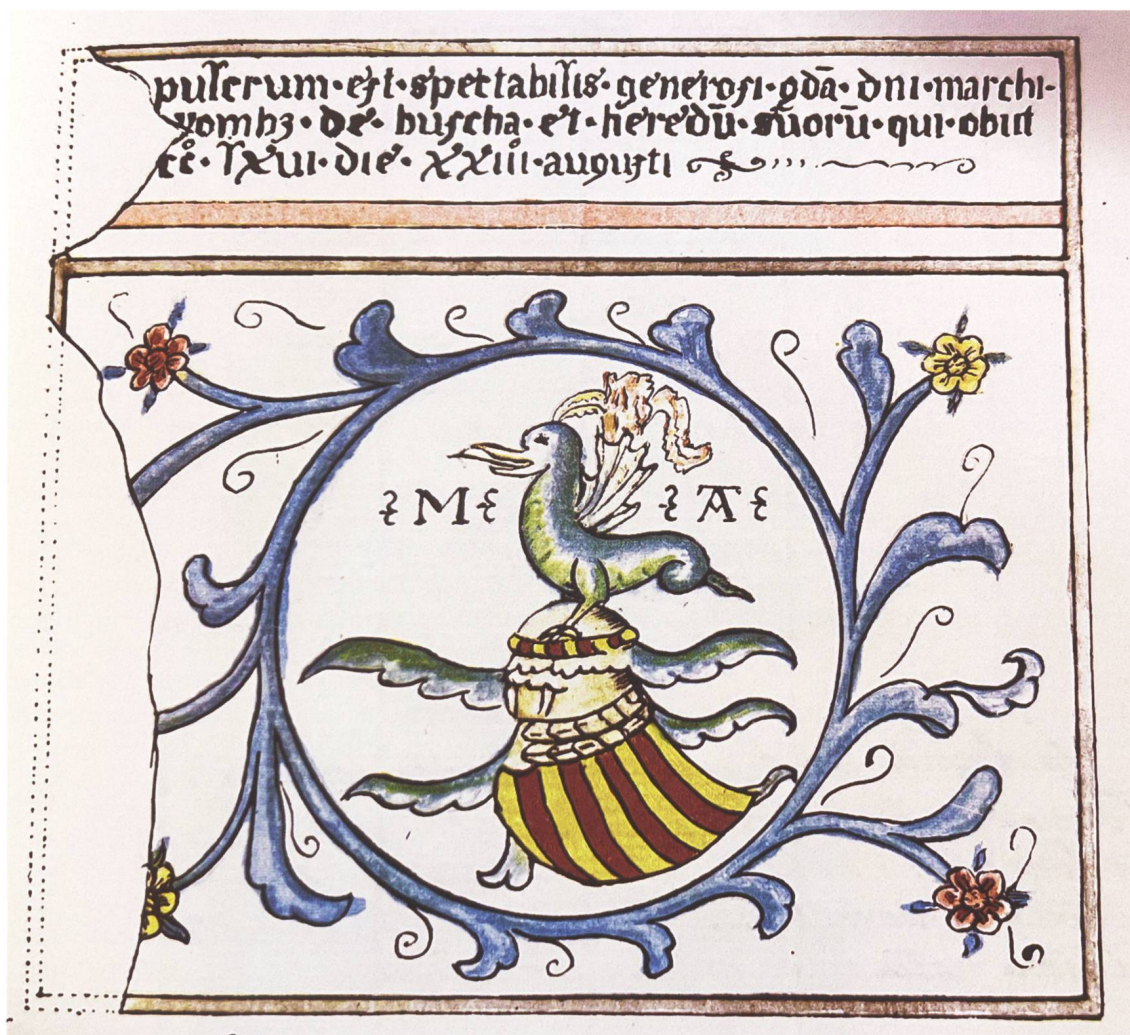 pulcrum·est·spectabilis·generosi·qdā·dni·marchi-
vombʒ·de·buscha·et·heredū·suorū·qui·obiit
cc̊·lxvii·die·xxiii̊·augusti
M A